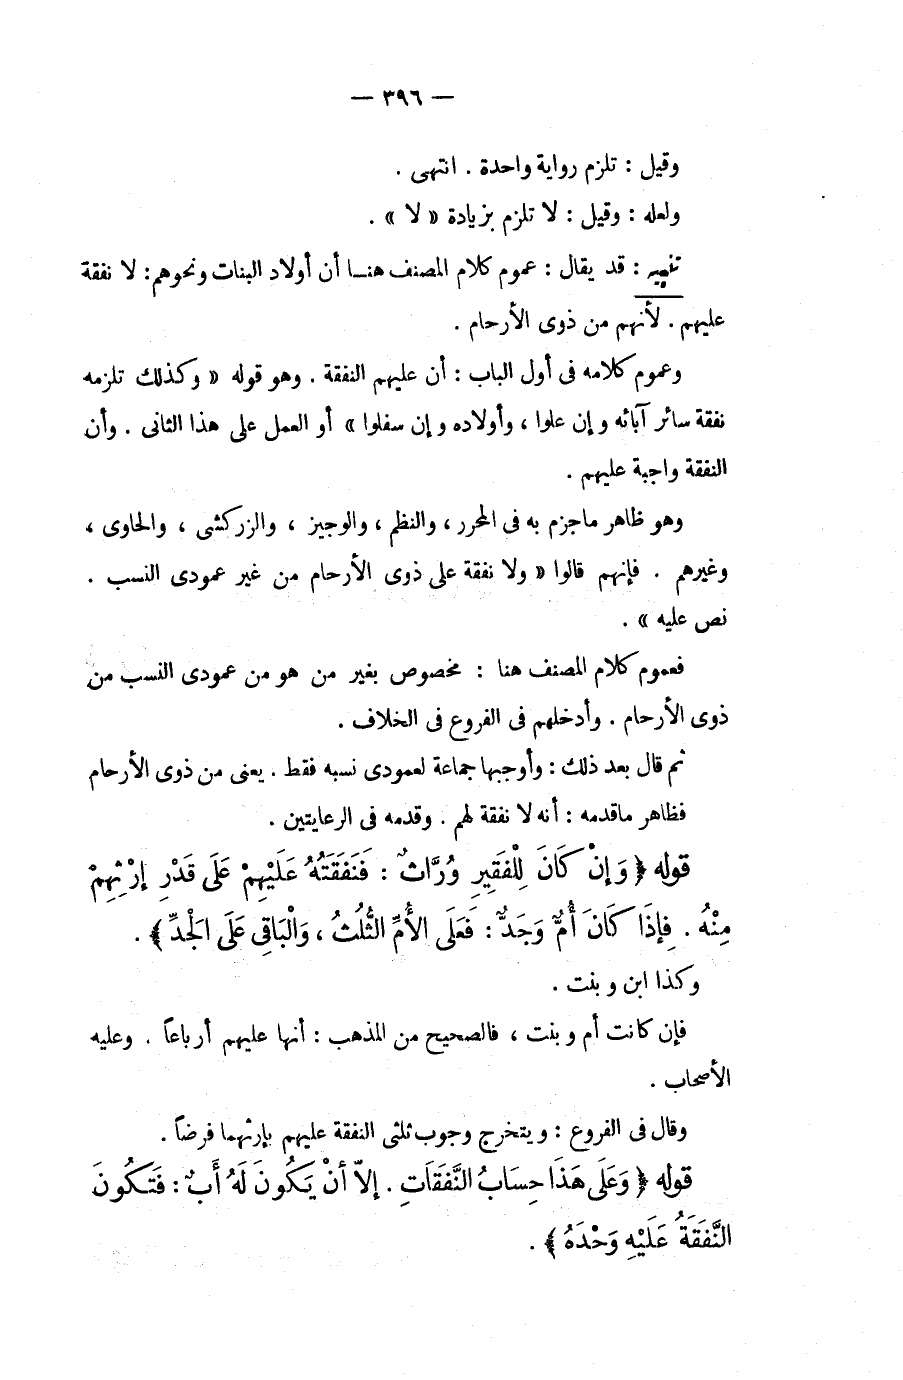 — ٣٩٦ —
وقيل : تلزم رواية واحدة . انتهى .
ولعله : وقيل : لا تلزم بزيادة « لا » .
تنبيه : قد يقال : عموم كلام المصنف هنـا أن أولاد البنات ونحوهم : لا نفقة
عليهم . لأنهم من ذوى الأرحام .
وعموم كلامه فى أول الباب : أن عليهم النفقة . وهو قوله « وكذلك تلزمه
نفقة سائر آبائه وإن علوا ، وأولاده وإن سفلوا » أو العمل على هذا الثانى . وأن
النفقة واجبة عليهم .
وهو ظاهر ماجزم به فى المحرر ، والنظم ، والوجيز ، والزركشى ، والحاوى ،
وغيرهم . فإنهم قالوا « ولا نفقة على ذوى الأرحام من غير عمودى النسب .
نص عليه » .
فعموم كلام المصنف هنا : مخصوص بغير من هو من عمودى النسب من
ذوى الأرحام . وأدخلهم فى الفروع فى الخلاف .
ثم قال بعد ذلك : وأوجبها جماعة لعمودى نسبه فقط . يعنى من ذوى الأرحام
فظاهر ماقدمه : أنه لا نفقة لهم . وقدمه فى الرعايتين .
قوله ﴿ وَإِنْ كَانَ لِلْفَقِيرِ وُرَّاثٌ : فَنَفَقَتُهُ عَلَيْهِمْ عَلَى قَدْرِ إِرْثِهِمْ
مِنْهُ . فِإِذَا كَانَ أُمٌّ وَجَدٌّ : فَعَلَى الأُمِّ الثُّلُثُ ، وَالْبَاقِى عَلَى الْجَدِّ ﴾ .
وكذا ابن وبنت .
فإن كانت أم وبنت ، فالصحيح من المذهب : أنها عليهم أرباعاً . وعليه
الأصحاب .
وقال فى الفروع : ويتخرج وجوب ثلثى النفقة عليهم بإرثهما فرضاً .
قوله ﴿ وَعَلَى هَذَا حِسَابُ النَّفَقَاتِ . إِلاّ أنْ يَكُونَ لَهُ أَبٌ : فَتَكُونَ
النَّفَقَةُ عَلَيْهِ وَحْدَهُ ﴾ .